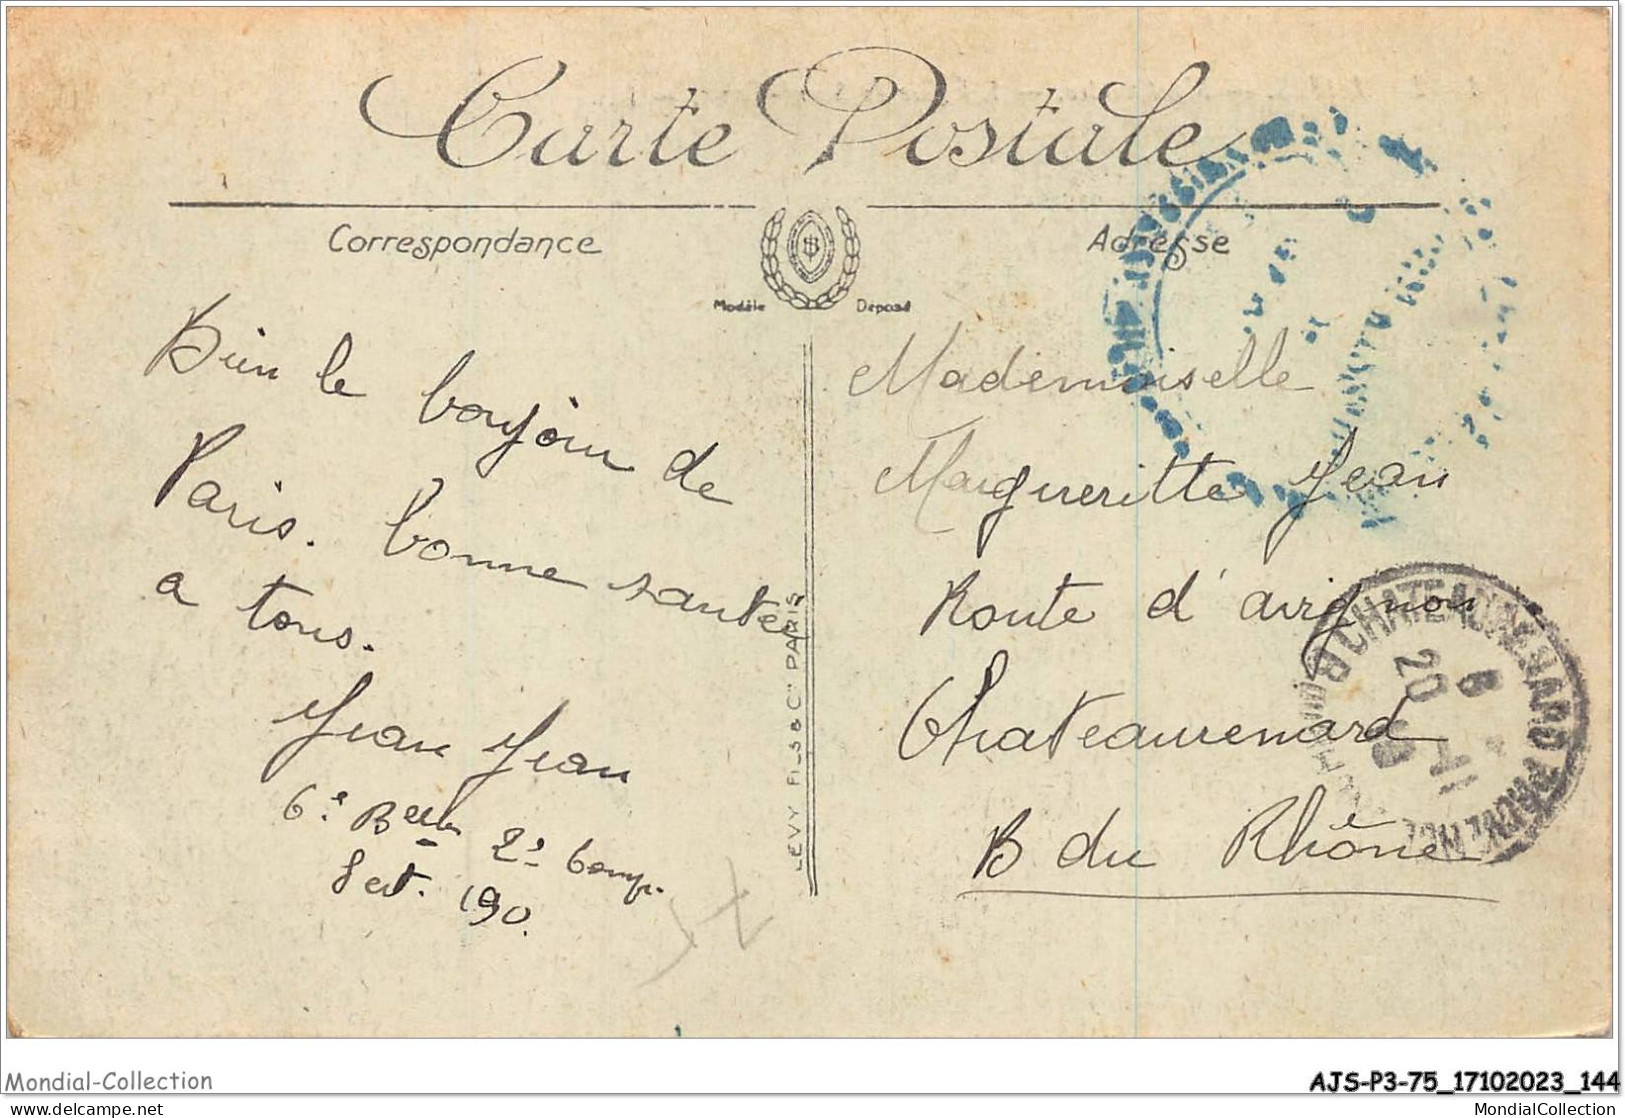 Carte Postale
Correspondance
Adresse
Modèle Déposé
Bien le boujour de
Paris. bonne santée
a tous.
Jean Jean
6e Bellon 2e Comp.
Sect. 190.
LEVY FILS & Cie PARIS
Mademoiselle
Margueritte Jean
Route d'avignon
Chateaurenard
B du Rhône
CHATEAURENARD PROVENCE
B DU RHONE
Mondial-Collection
AJS-P3-75_17102023_144
delcampe.net
MondialCollection